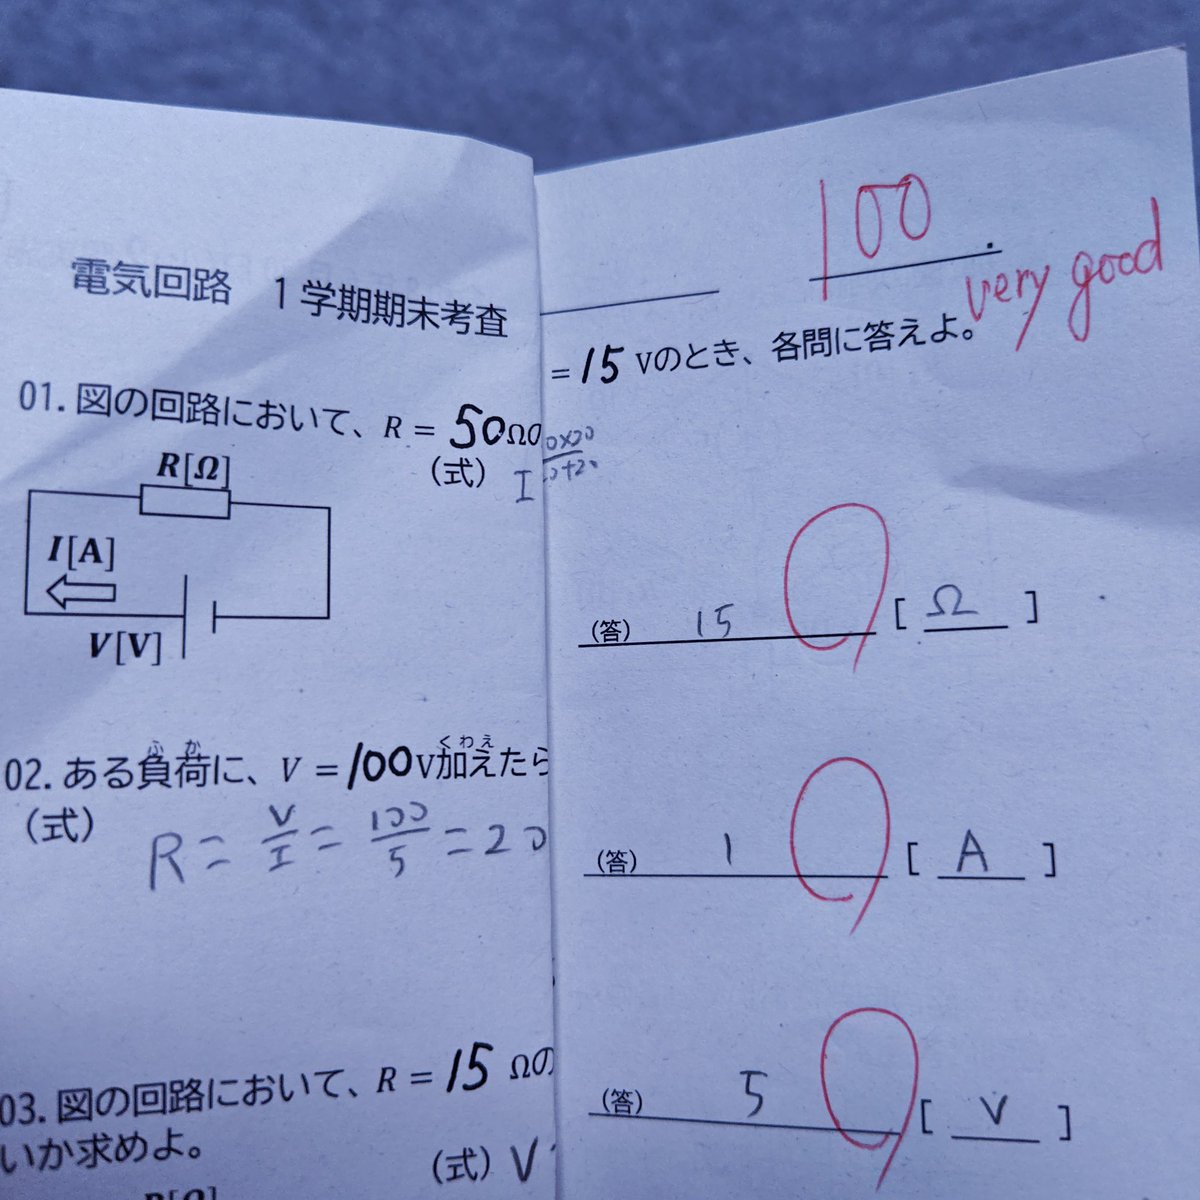 電気回路 1学期期末考査
01. 図の回路において、R = 50Ωの
(式) I
R[Ω]
I[A]
V[V]
ふか くわえ
02. ある負荷に、V = 100V加えたら
(式)
R = V/I = 100/5 = 20
03. 図の回路において、R = 15 Ωの
いか求めよ。
(式) V
100
very good
= 15 Vのとき、各問に答えよ。
(答) 15 [ Ω ]
(答) 1 [ A ]
(答) 5 [ V ]